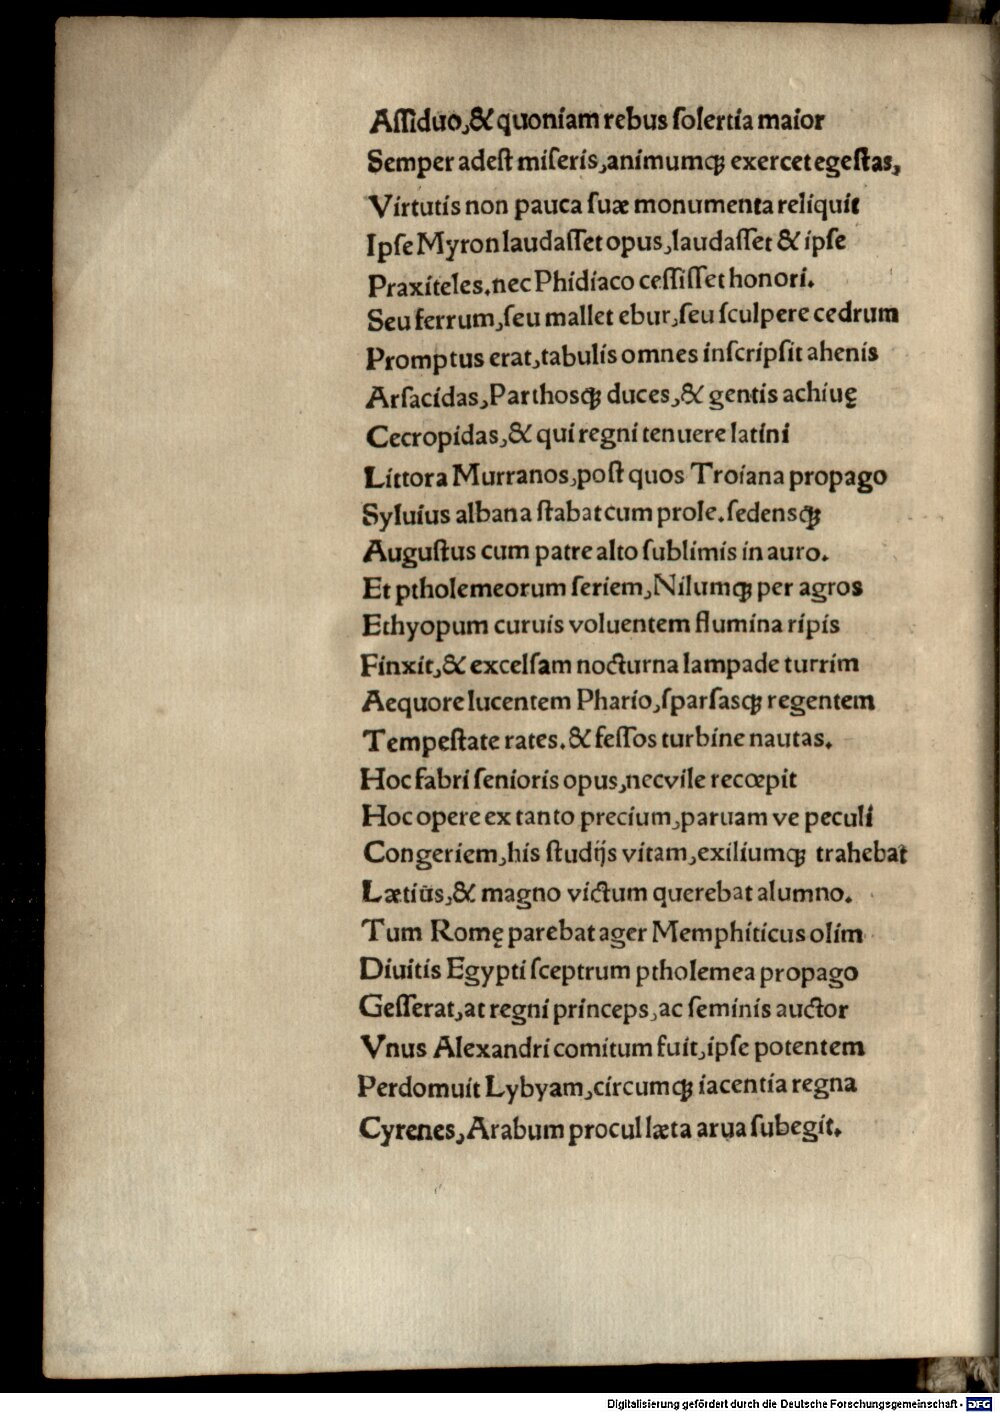 Aſſiduo,& quoniam rebus ſolertia maior
Semper adeſt miſeris,animumqꝫ exercet egeſtas,
Virtutis non pauca ſuæ monumenta reliquit
Ipſe Myron laudaſſet opus,laudaſſet & ipſe
Praxiteles.nec Phidiaco ceſſiſſet honori.
Seu ferrum,ſeu mallet ebur,ſeu ſculpere cedrum
Promptus erat,tabulis omnes inſcripſit ahenis
Arſacidas,Parthosqꝫ duces,& gentis achiuę
Cecropidas,& qui regni tenuere latini
Littora Murranos,poſt quos Troiana propago
Syluius albana ſtabat cum prole.ſedensqꝫ
Auguſtus cum patre alto ſublimis in auro.
Et ptholemeorum ſeriem,Nilumqꝫ per agros
Ethyopum curuis voluentem flumina ripis
Finxit,& excelſam nocturna lampade turrim
Aequore lucentem Phario,ſparſasqꝫ regentem
Tempeſtate rates.& feſſos turbine nautas.
Hoc fabri ſenioris opus,nec vile recœpit
Hoc opere ex tanto precium,paruam ve peculi
Congeriem,his ſtudijs vitam,exiliumqꝫ trahebat
Lætiũs,& magno victum querebat alumno.
Tum Romę parebat ager Memphiticus olim
Diuitis Egypti ſceptrum ptholemea propago
Geſſerat,at regni princeps,ac ſeminis auctor
Vnus Alexandri comitum fuit,ipſe potentem
Perdomuit Lybyam,circumqꝫ iacentia regna
Cyrenes,Arabum procul læta arua ſubegit.
Digitalisierung gefördert durch die Deutsche Forschungsgemeinschaft - DFG